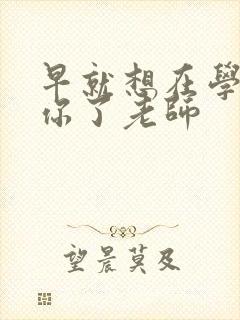 早就想在學
你了老師
望晨莫及